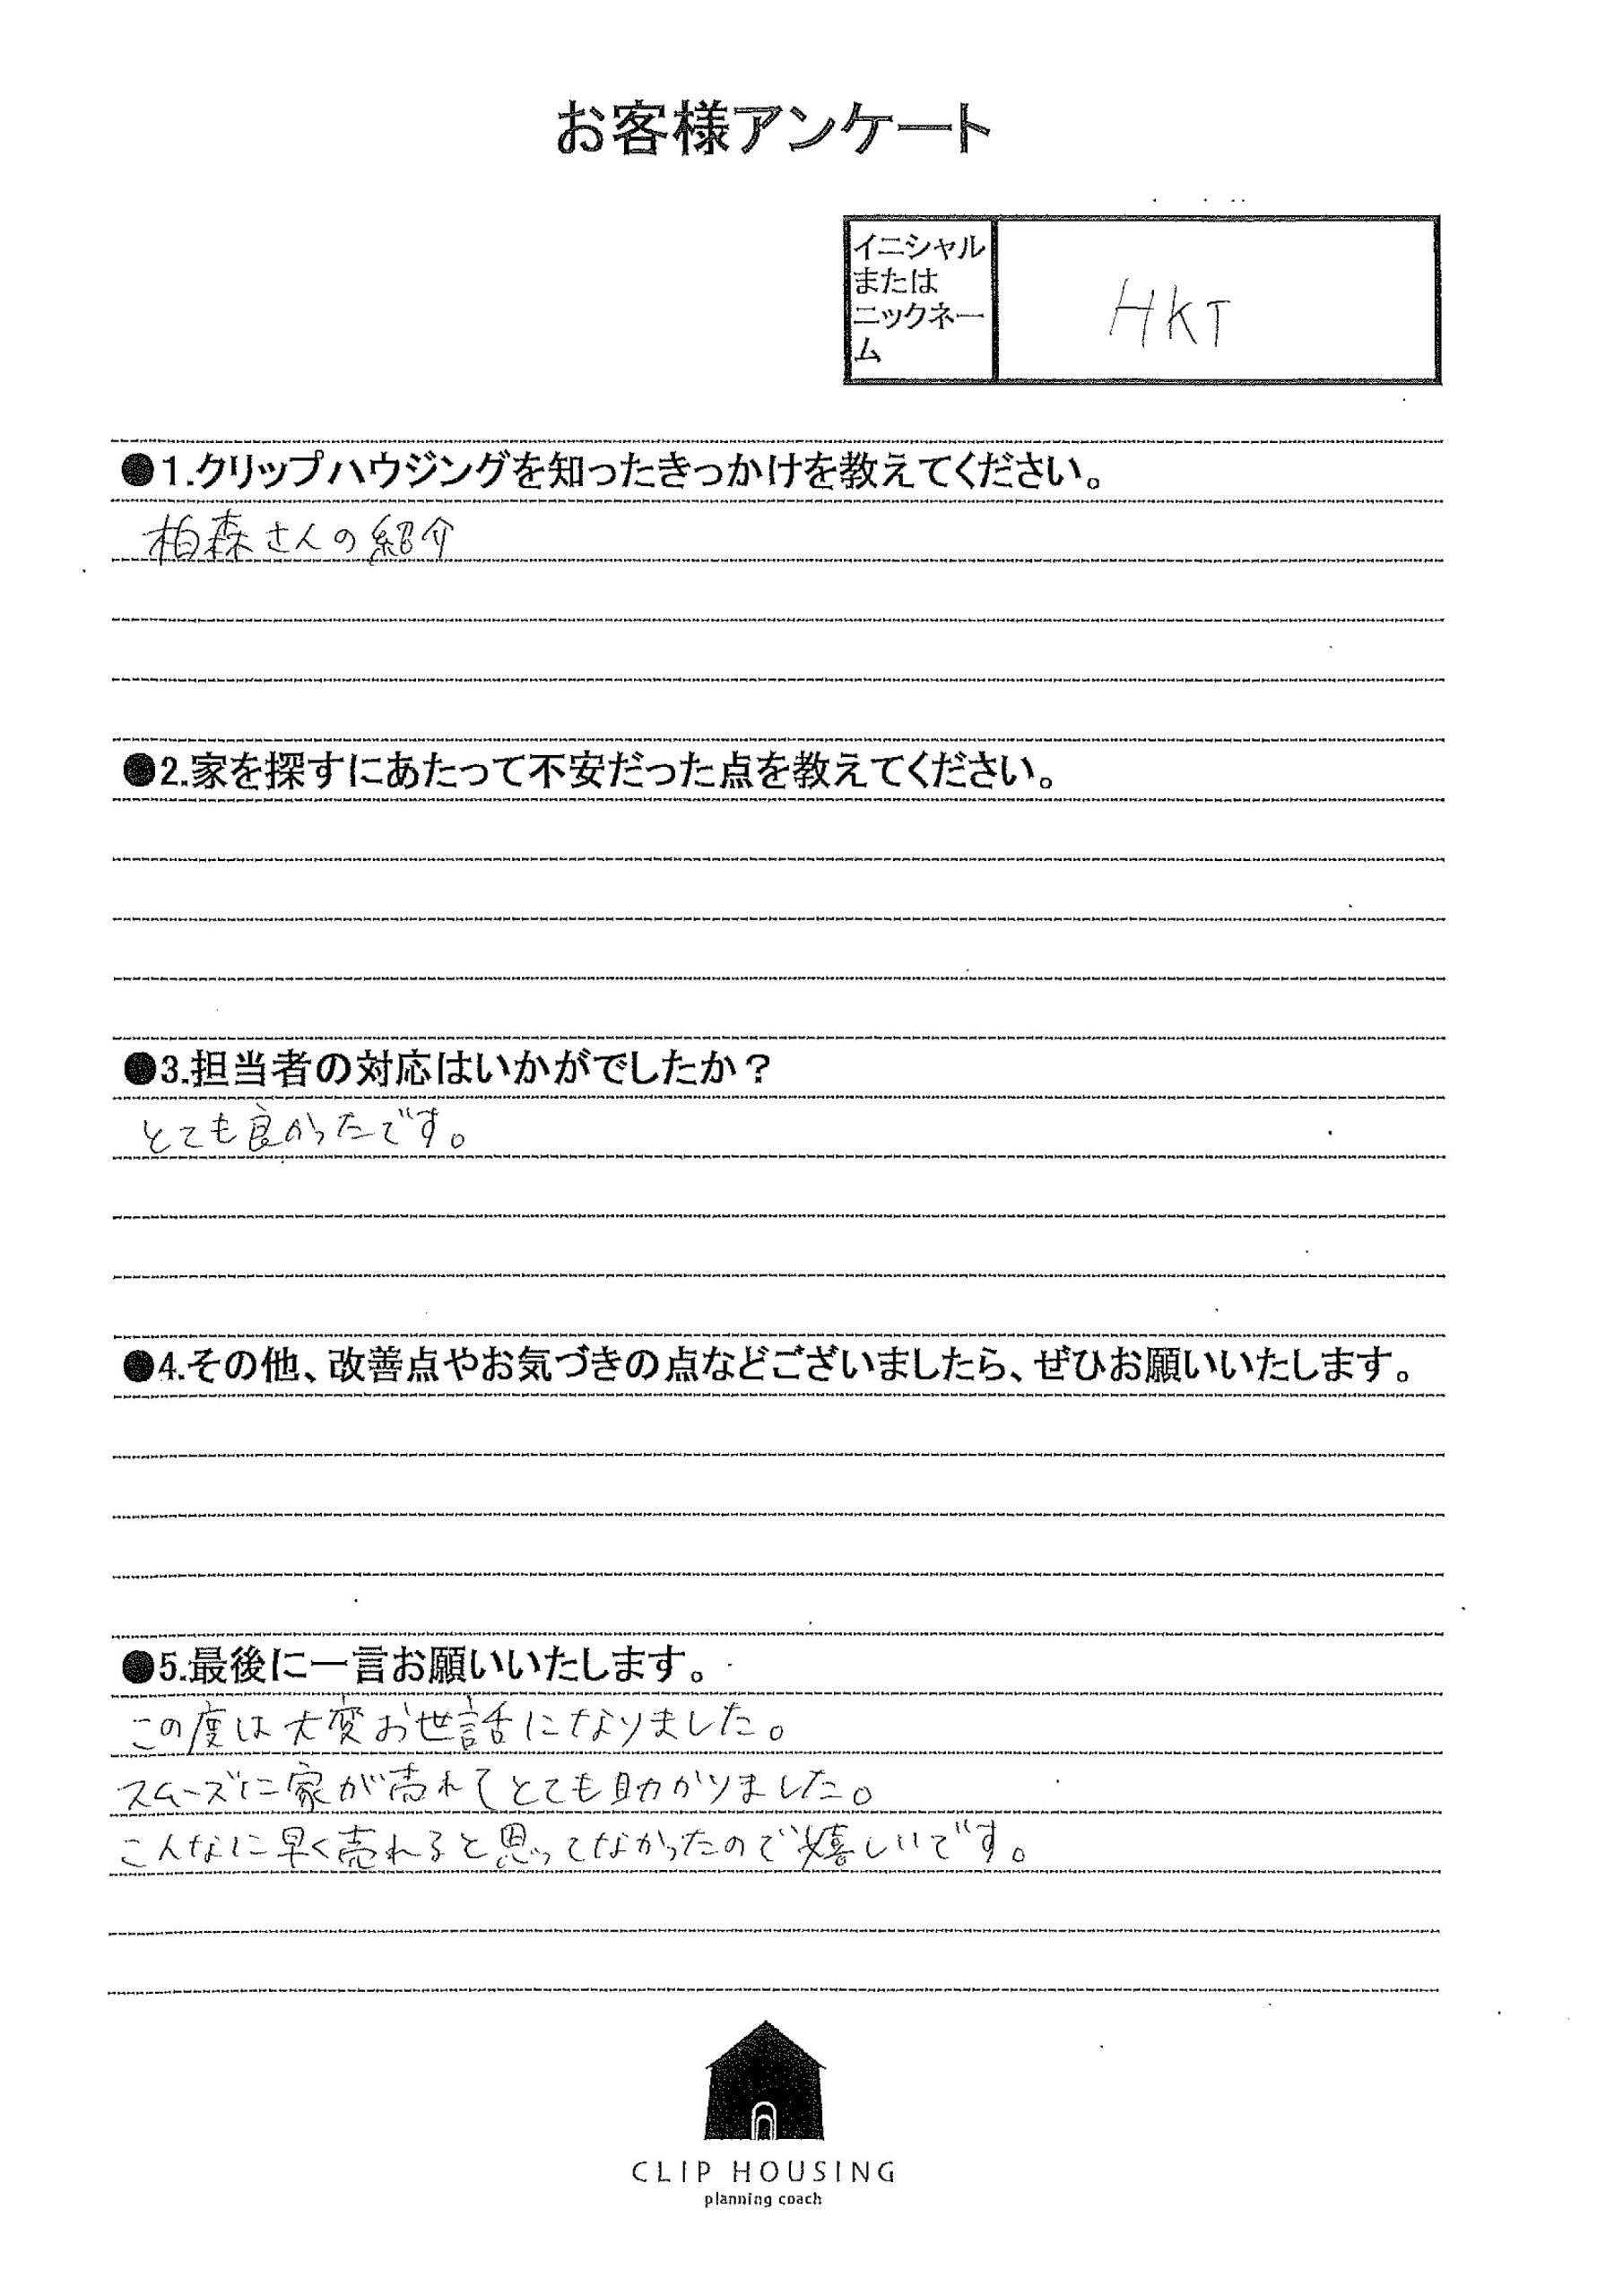 お客様アンケート
イニシャル
または
ニックネー
ム
HKT
●1.クリップハウジングを知ったきっかけを教えてください。
柏森さんの紹介
●2.家を探すにあたって不安だった点を教えてください。
●3.担当者の対応はいかがでしたか？
とても良かったです。
●4.その他、改善点やお気づきの点などございましたら、ぜひお願いいたします。
●5.最後に一言お願いいたします。
この度は大変お世話になりました。
スムーズに家が売れてとても助かりました。
こんなに早く売れると思ってなかったので嬉しいです。
CLIP HOUSING
planning coach